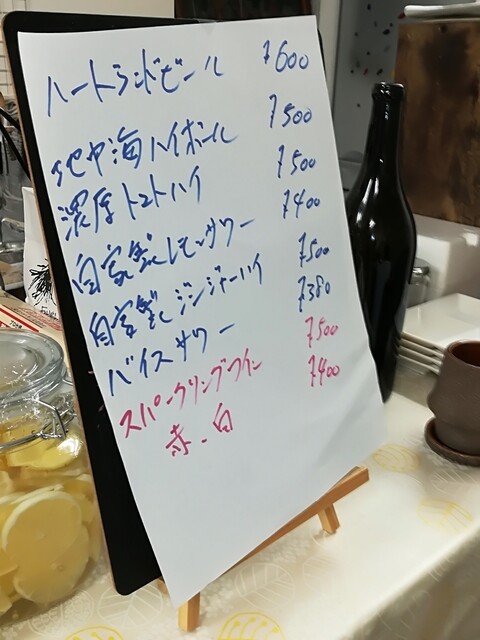 ハートランドビール ¥600
地中海ハイボール ¥500
濃厚トマトハイ ¥500
自家製レモンサワー ¥400
自家製ジンジャーハイ ¥500
バイスサワー ¥380
スパークリングワイン ¥500
赤.白 ¥400